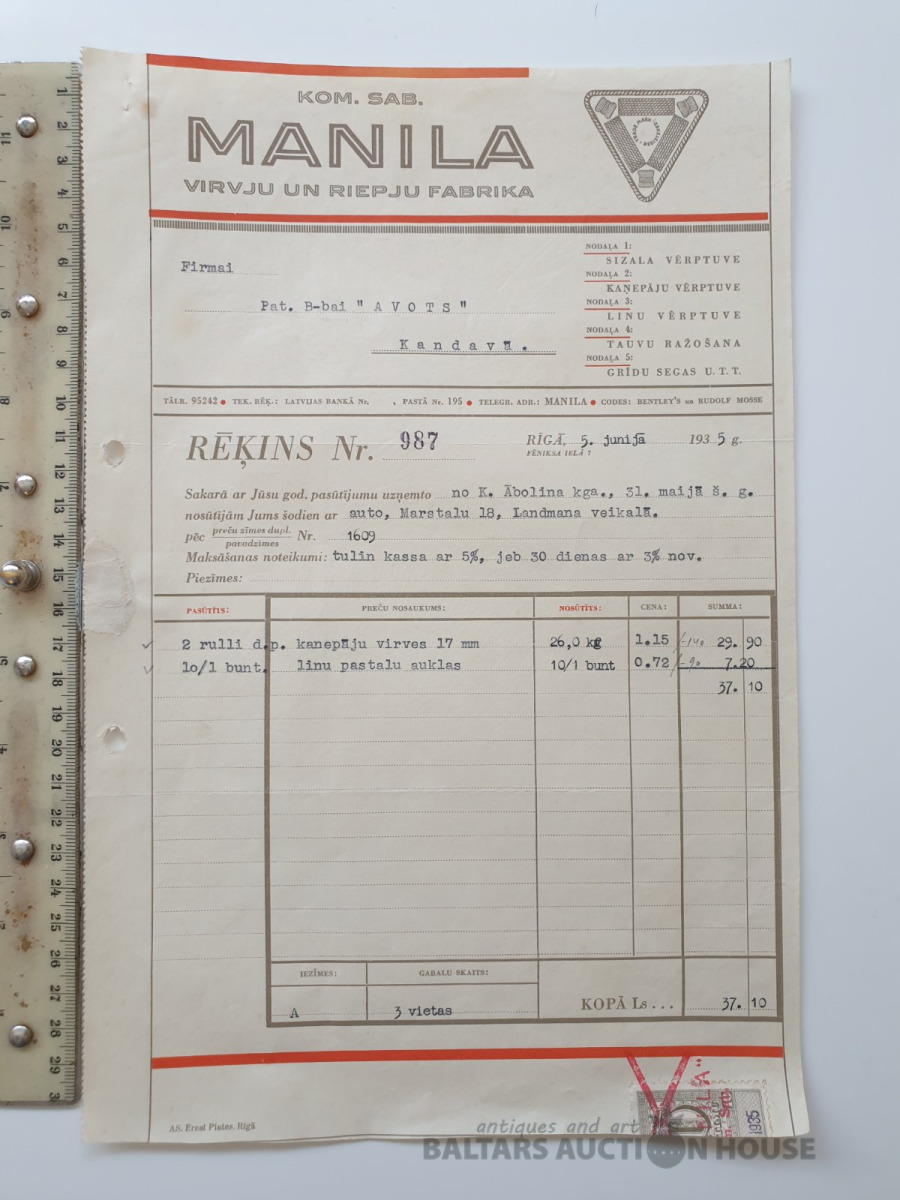 KOM. SAB.
MANILA
VIRVJU UN RIEPJU FABRIKA
Firmai
Pat. B-bai "AVOTS"
Kandavā.
NODAĻA 1:
SIZALA VĒRPTUVE
NODAĻA 2:
KAŅEPĀJU VĒRPTUVE
NODAĻA 3:
LINU VĒRPTUVE
NODAĻA 4:
TAUVU RAŽOŠANA
NODAĻA 5:
GRĪDU SEGAS U.T.T.
TĀLR. 95242 ● TEK. RĒĶ.: LATVIJAS BANKĀ Nr. , PASTĀ Nr. 195 ● TELEGR. ADR.: MANILA ● CODES: BENTLEY'S un RUDOLF MOSSE
RĒĶINS Nr. 987
RĪGĀ, 5. junijā 1935 g.
FĒNIKSA IELĀ 7
Sakarā ar Jūsu god. pasūtījumu uzņemto no K. Ābolina kga., 31. maijā š. g.
nosūtījām Jums šodien ar auto, Marstalu 18, Landmana veikalā.
pēc preču zīmes dupl. pavadzīmes Nr. 1609
Maksāšanas noteikumi: tulin kassa ar 5%, jeb 30 dienas ar 3% nov.
Piezīmes:
PASŪTĪTS: PREČU NOSAUKUMS: NOSŪTĪTS: CENA: SUMMA:
2 rulli d.p. kanepāju virves 17 mm 26,0 kg 1.15 29. 90
10/1 bunt. linu pastalu auklas 10/1 bunt 0.72 7.20
37. 10
IEZĪMES: GABALU SKAITS:
A 3 vietas KOPĀ Ls ... 37. 10
AS. Ernst Plates, Rīgā
1935
antiques and art
BALTARS AUCTION HOUSE